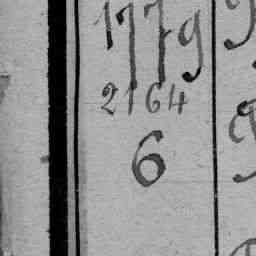 1779
2164
6